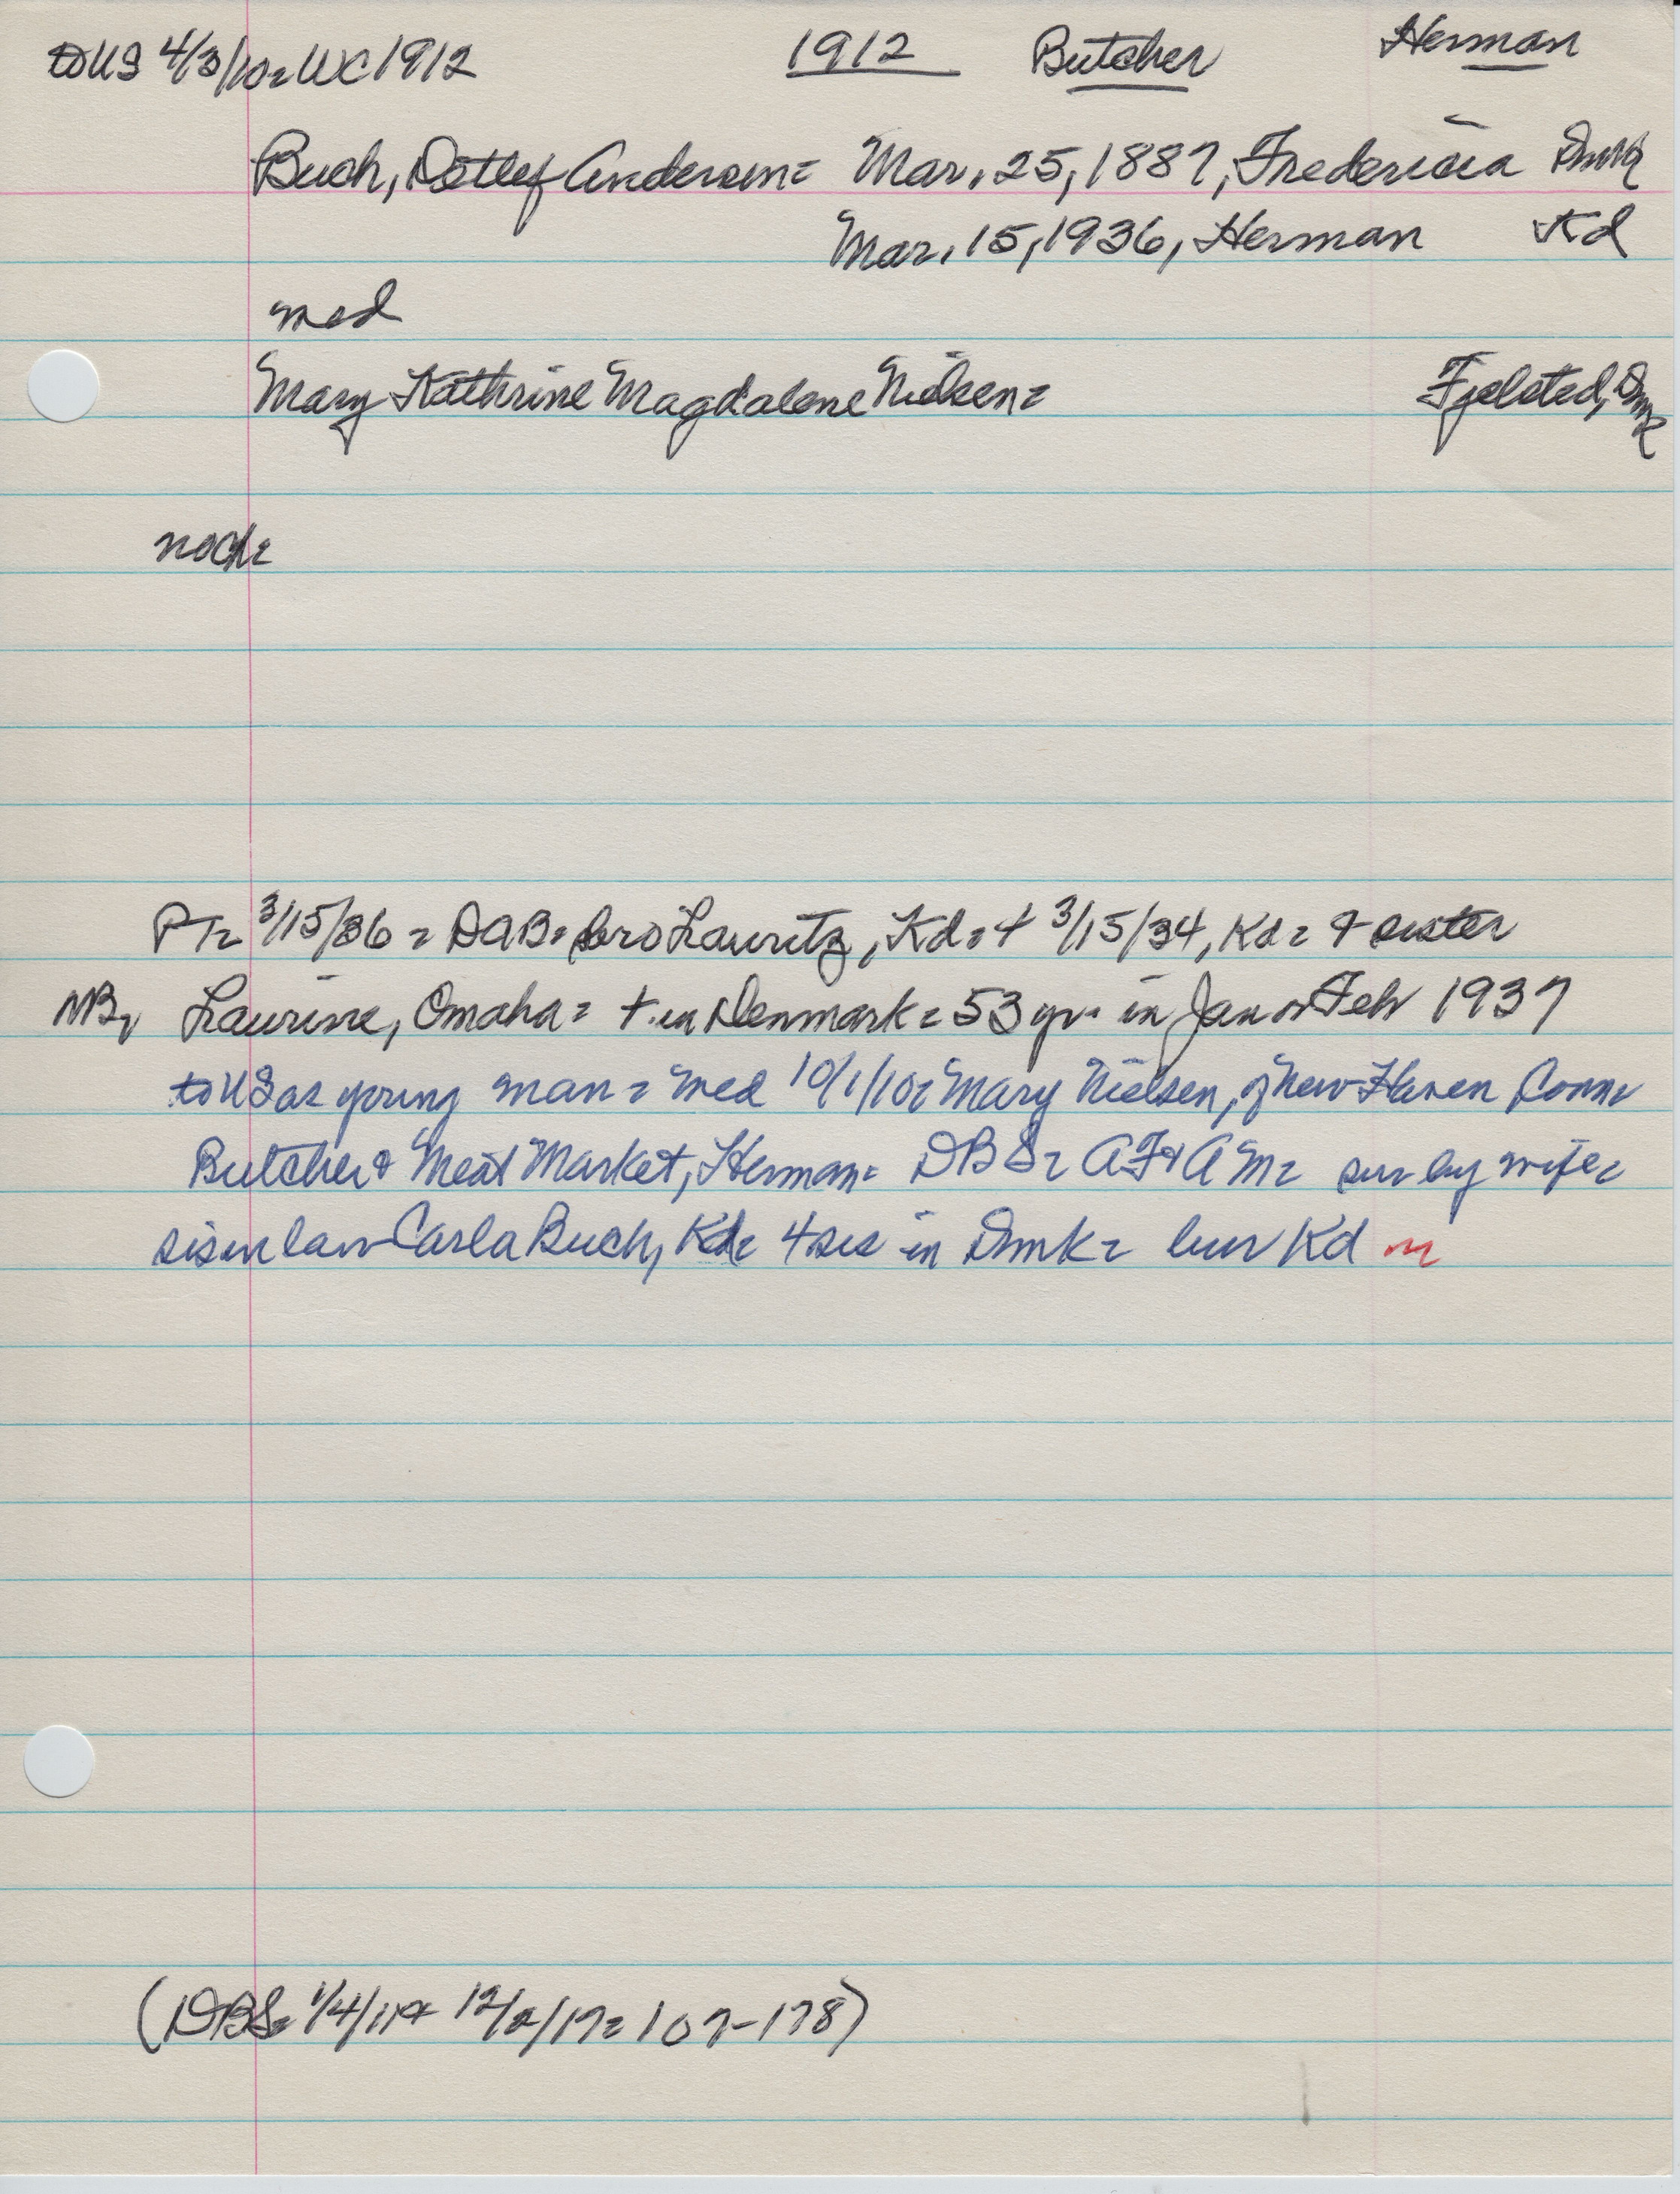 to US 4/3/10= WC 1912 1912 Butcher Herman
Buch, Detlef Andersen= Mar. 25, 1887, Fredericia Dmk
Mar. 15, 1936, Herman Kd
med
Mary Kathrine Magdalene Nielsen= Fjelsted, Dmk
noch=
PT= 3/15/36= DAB= bro Lauritz, Kd= + 3/15/34, Kd= & sister
NB, Laurine, Omaha= + in Denmark= 53 yr. in Jan or Feb 1937
to US as young man= med 10/1/10= Mary Nielsen, of New Haven Conn=
Butcher & Meat Market, Herman= DBS= AF&AM= sur by wife=
sis in law Carla Buch, Kd= 4 sis in Dmk= bur Kd
(DBS= 1/4/17& 12/2/17= 107-178)